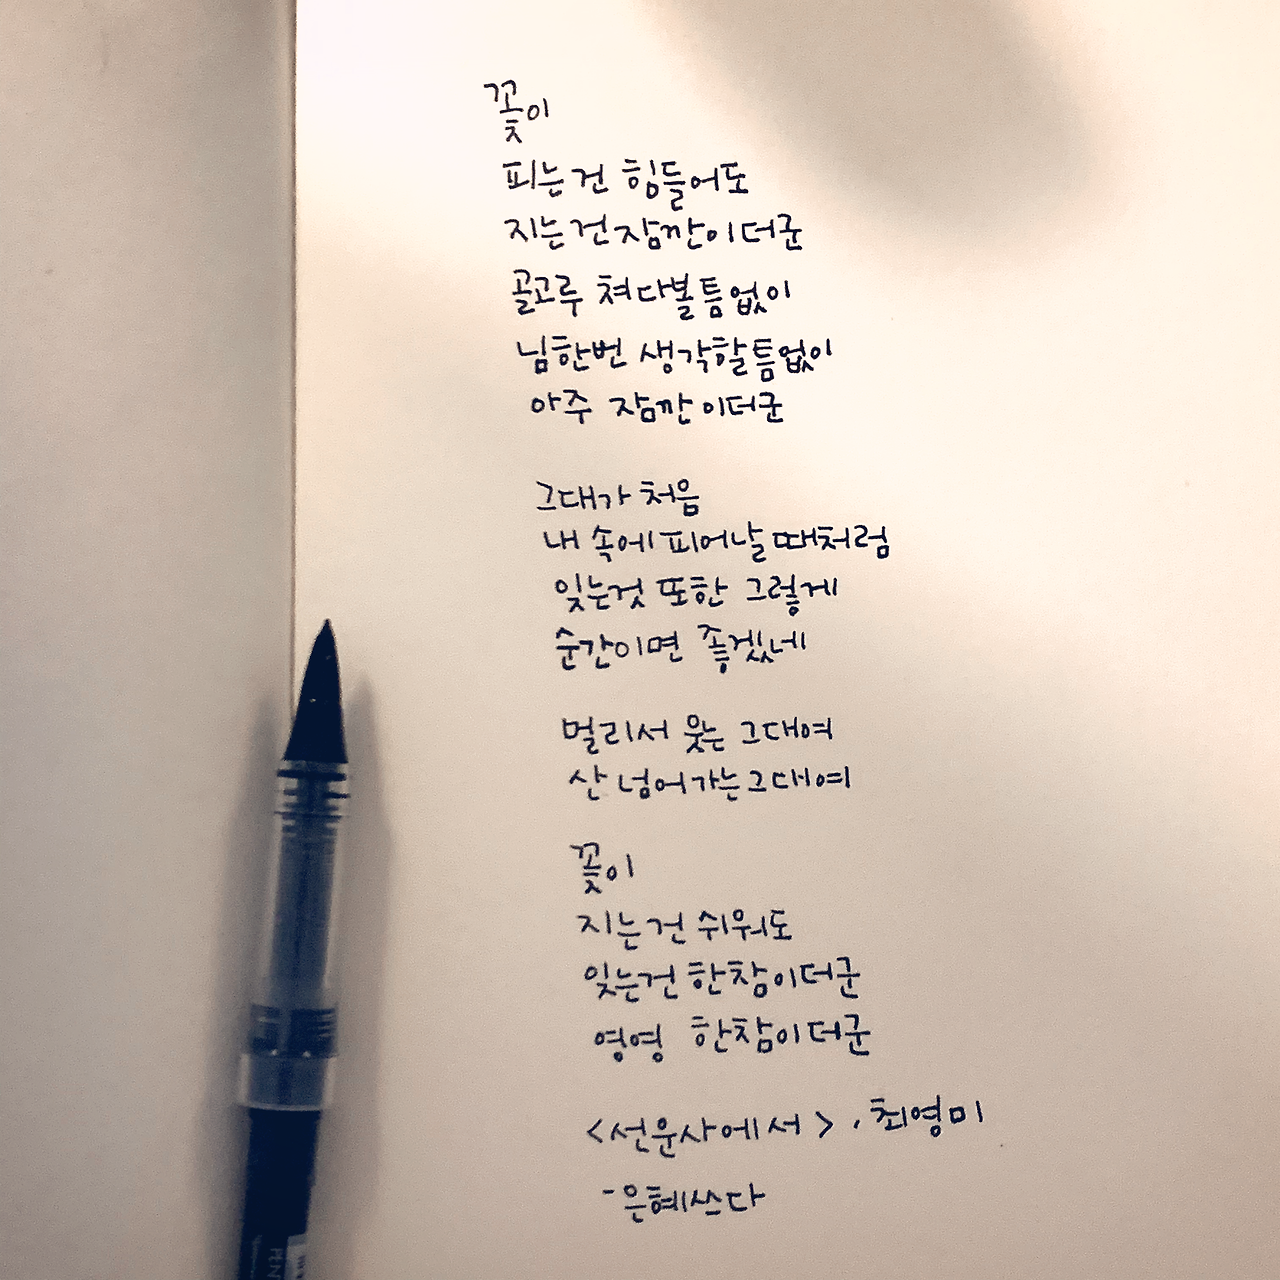 꽃이
피는건 힘들어도
지는건 잠깐이더군
골고루 쳐다볼 틈 없이
님 한번 생각할 틈 없이
아주 잠깐이더군
그대가 처음
내 속에 피어날 때처럼
잊는것 또한 그렇게
순간이면 좋겠네
멀리서 웃는 그대여
산 넘어가는 그대여
꽃이
지는건 쉬워도
잊는건 한참이더군
영영 한참이더군
<선운사에서>, 최영미
- 은혜쓰다
PEN